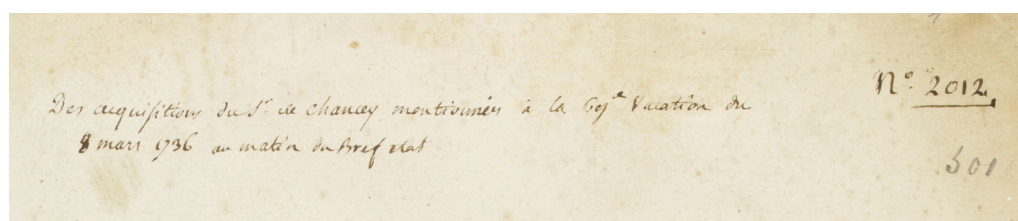 N.° 2012.
Des acquisitions du S.r de Chancey mentionnées à la 69.e Vacation du
8 mars 1736 au matin du Bref etat
501